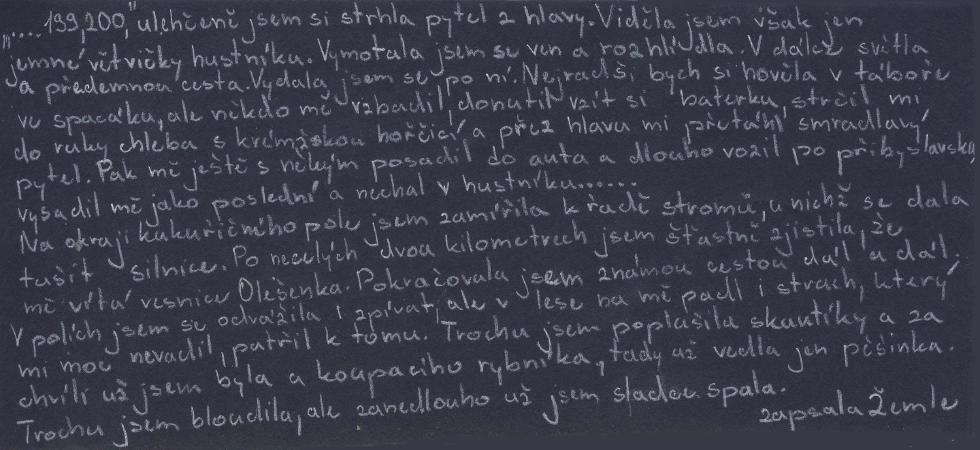 "....199,200," ulehčeně jsem si strhla pytel z hlavy. Viděla jsem však jen
jemné větvičky hustníku. Vymotala jsem se ven a rozhlídla. V dálce světla
a předemnou cesta. Vydala jsem se po ní. Nejradši bych si hověla v táboře
ve spacáku, ale někdo mě vzbudil donutil vzít si baterku, strčil mi
do ruky chleba s kremžskou hořčicí a přez hlavu mi přetáhl smradlavý
pytel. Pak mě ještě s někým posadil do auta a dlouho vozil po přibyslavsku
vysadil mě jako poslední a nechal v hustníku......
Na okraji kukuřičního pole jsem zamířila k řadě stromů, u nichž se dala
tušit silnice. Po necelých dvou kilometrech jsem šťastně zjistila, že
mě vítá vesnice Olešenka. Pokračovala jsem známou cestou dál a dál.
V polích jsem se odvážila i zpívat, ale v lese na mě padl i strach, který
mi moc nevadil, patřil k tomu. Trochu jsem poplašila skautíky a za
chvíli už jsem byla u koupacího rybníka, tady už vedla jen pěšinka.
Trochu jsem bloudila, ale zanedlouho už jsem sladce spala.
zapsala Žemle